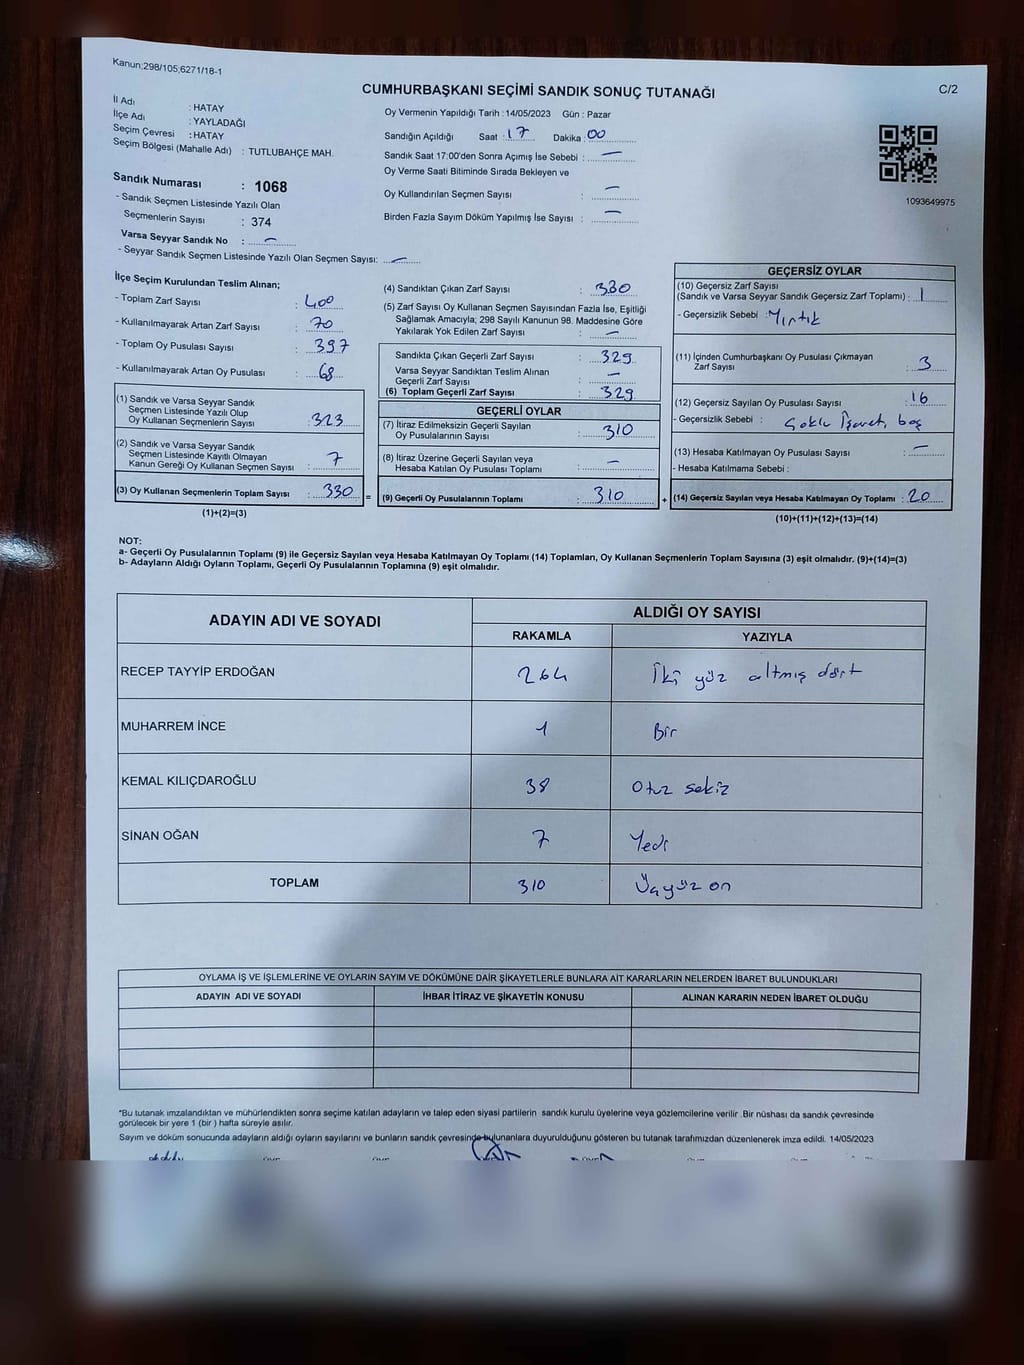 Kanun;298/105;6271/18-1
CUMHURBAŞKANI SEÇİMİ SANDIK SONUÇ TUTANAĞI
C/2
İl Adı : HATAY
İlçe Adı : YAYLADAĞI
Seçim Çevresi : HATAY
Seçim Bölgesi (Mahalle Adı) : TUTLUBAHÇE MAH.
Sandık Numarası : 1068
- Sandık Seçmen Listesinde Yazılı Olan
Seçmenlerin Sayısı : 374
Varsa Seyyar Sandık No : —
- Seyyar Sandık Seçmen Listesinde Yazılı Olan Seçmen Sayısı: —
Oy Vermenin Yapıldığı Tarih : 14/05/2023 Gün : Pazar
Sandığın Açıldığı Saat : 17 Dakika : 00
Sandık Saat 17:00'den Sonra Açımış İse Sebebi : —
Oy Verme Saati Bitiminde Sırada Bekleyen ve
Oy Kullandırılan Seçmen Sayısı : —
Birden Fazla Sayım Döküm Yapılmış İse Sayısı : —
1093649975
İlçe Seçim Kurulundan Teslim Alınan;
- Toplam Zarf Sayısı : 400
- Kullanılmayarak Artan Zarf Sayısı : 70
- Toplam Oy Pusulası Sayısı : 397
- Kullanılmayarak Artan Oy Pusulası : 68
(1) Sandık ve Varsa Seyyar Sandık
Seçmen Listesinde Yazılı Olup
Oy Kullanan Seçmenlerin Sayısı : 323
(2) Sandık ve Varsa Seyyar Sandık
Seçmen Listesinde Kayıtlı Olmayan
Kanun Gereği Oy Kullanan Seçmen Sayısı : 7
(3) Oy Kullanan Seçmenlerin Toplam Sayısı : 330 =
(1)+(2)=(3)
(4) Sandıktan Çıkan Zarf Sayısı : 330
(5) Zarf Sayısı Oy Kullanan Seçmen Sayısından Fazla İse, Eşitliği
Sağlamak Amacıyla; 298 Sayılı Kanunun 98. Maddesine Göre
Yakılarak Yok Edilen Zarf Sayısı : —
Sandıkta Çıkan Geçerli Zarf Sayısı : 329
Varsa Seyyar Sandıktan Teslim Alınan
Geçerli Zarf Sayısı : —
(6) Toplam Geçerli Zarf Sayısı : 329
GEÇERLİ OYLAR
(7) İtiraz Edilmeksizin Geçerli Sayılan
Oy Pusulalarının Sayısı : 310
(8) İtiraz Üzerine Geçerli Sayılan veya
Hesaba Katılan Oy Pusulası Toplamı : —
(9) Geçerli Oy Pusulalarının Toplamı : 310 +
GEÇERSİZ OYLAR
(10) Geçersiz Zarf Sayısı
(Sandık ve Varsa Seyyar Sandık Geçersiz Zarf Toplamı) : 1
- Geçersizlik Sebebi : Yırtık
(11) İçinden Cumhurbaşkanı Oy Pusulası Çıkmayan
Zarf Sayısı : 3
(12) Geçersiz Sayılan Oy Pusulası Sayısı : 16
- Geçersizlik Sebebi : Çoklu İşaret, boş
(13) Hesaba Katılmayan Oy Pusulası Sayısı : —
- Hesaba Katılmama Sebebi :
(14) Geçersiz Sayılan veya Hesaba Katılmayan Oy Toplamı : 20
(10)+(11)+(12)+(13)=(14)
NOT:
a- Geçerli Oy Pusulalarının Toplamı (9) ile Geçersiz Sayılan veya Hesaba Katılmayan Oy Toplamı (14) Toplamları, Oy Kullanan Seçmenlerin Toplam Sayısına (3) eşit olmalıdır. (9)+(14)=(3)
b- Adayların Aldığı Oyların Toplamı, Geçerli Oy Pusulalarının Toplamına (9) eşit olmalıdır.
ADAYIN ADI VE SOYADI
ALDIĞI OY SAYISI
RAKAMLA YAZIYLA
RECEP TAYYİP ERDOĞAN 264 İki yüz altmış dört
MUHARREM İNCE 1 Bir
KEMAL KILIÇDAROĞLU 38 Otuz sekiz
SİNAN OĞAN 7 Yedi
TOPLAM 310 Üçyüz on
OYLAMA İŞ VE İŞLEMLERİNE VE OYLARIN SAYIM VE DÖKÜMÜNE DAİR ŞİKAYETLERLE BUNLARA AİT KARARLARIN NELERDEN İBARET BULUNDUKLARI
ADAYIN ADI VE SOYADI İHBAR İTİRAZ VE ŞİKAYETİN KONUSU ALINAN KARARIN NEDEN İBARET OLDUĞU
*Bu tutanak imzalandıktan ve mühürlendikten sonra seçime katılan adayların ve talep eden siyasi partilerin sandık kurulu üyelerine veya gözlemcilerine verilir. Bir nüshası da sandık çevresinde
görülecek bir yere 1 (bir ) hafta süreyle asılır.
Sayım ve döküm sonucunda adayların aldığı oyların sayılarını ve bunların sandık çevresinde bulunanlara duyurulduğunu gösteren bu tutanak tarafımızdan düzenlenerek imza edildi. 14/05/2023